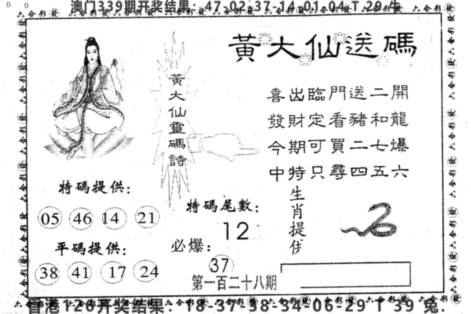 澳门339期开奖结果：47-02-37-14-01-04 T 29 牛
黃大仙送碼
黃大仙靈碼詩
喜出臨門送二開
發財定看豬和龍
今期可買二七爆
中特只尋四五六
生肖提供
特碼提供：
05 46 14 21
平碼提供：
38 41 17 24
特碼尾數：
12
必爆：
37
第一百二十八期
香港128开奖结果：18-37-38-34-06-29 T 39 兔